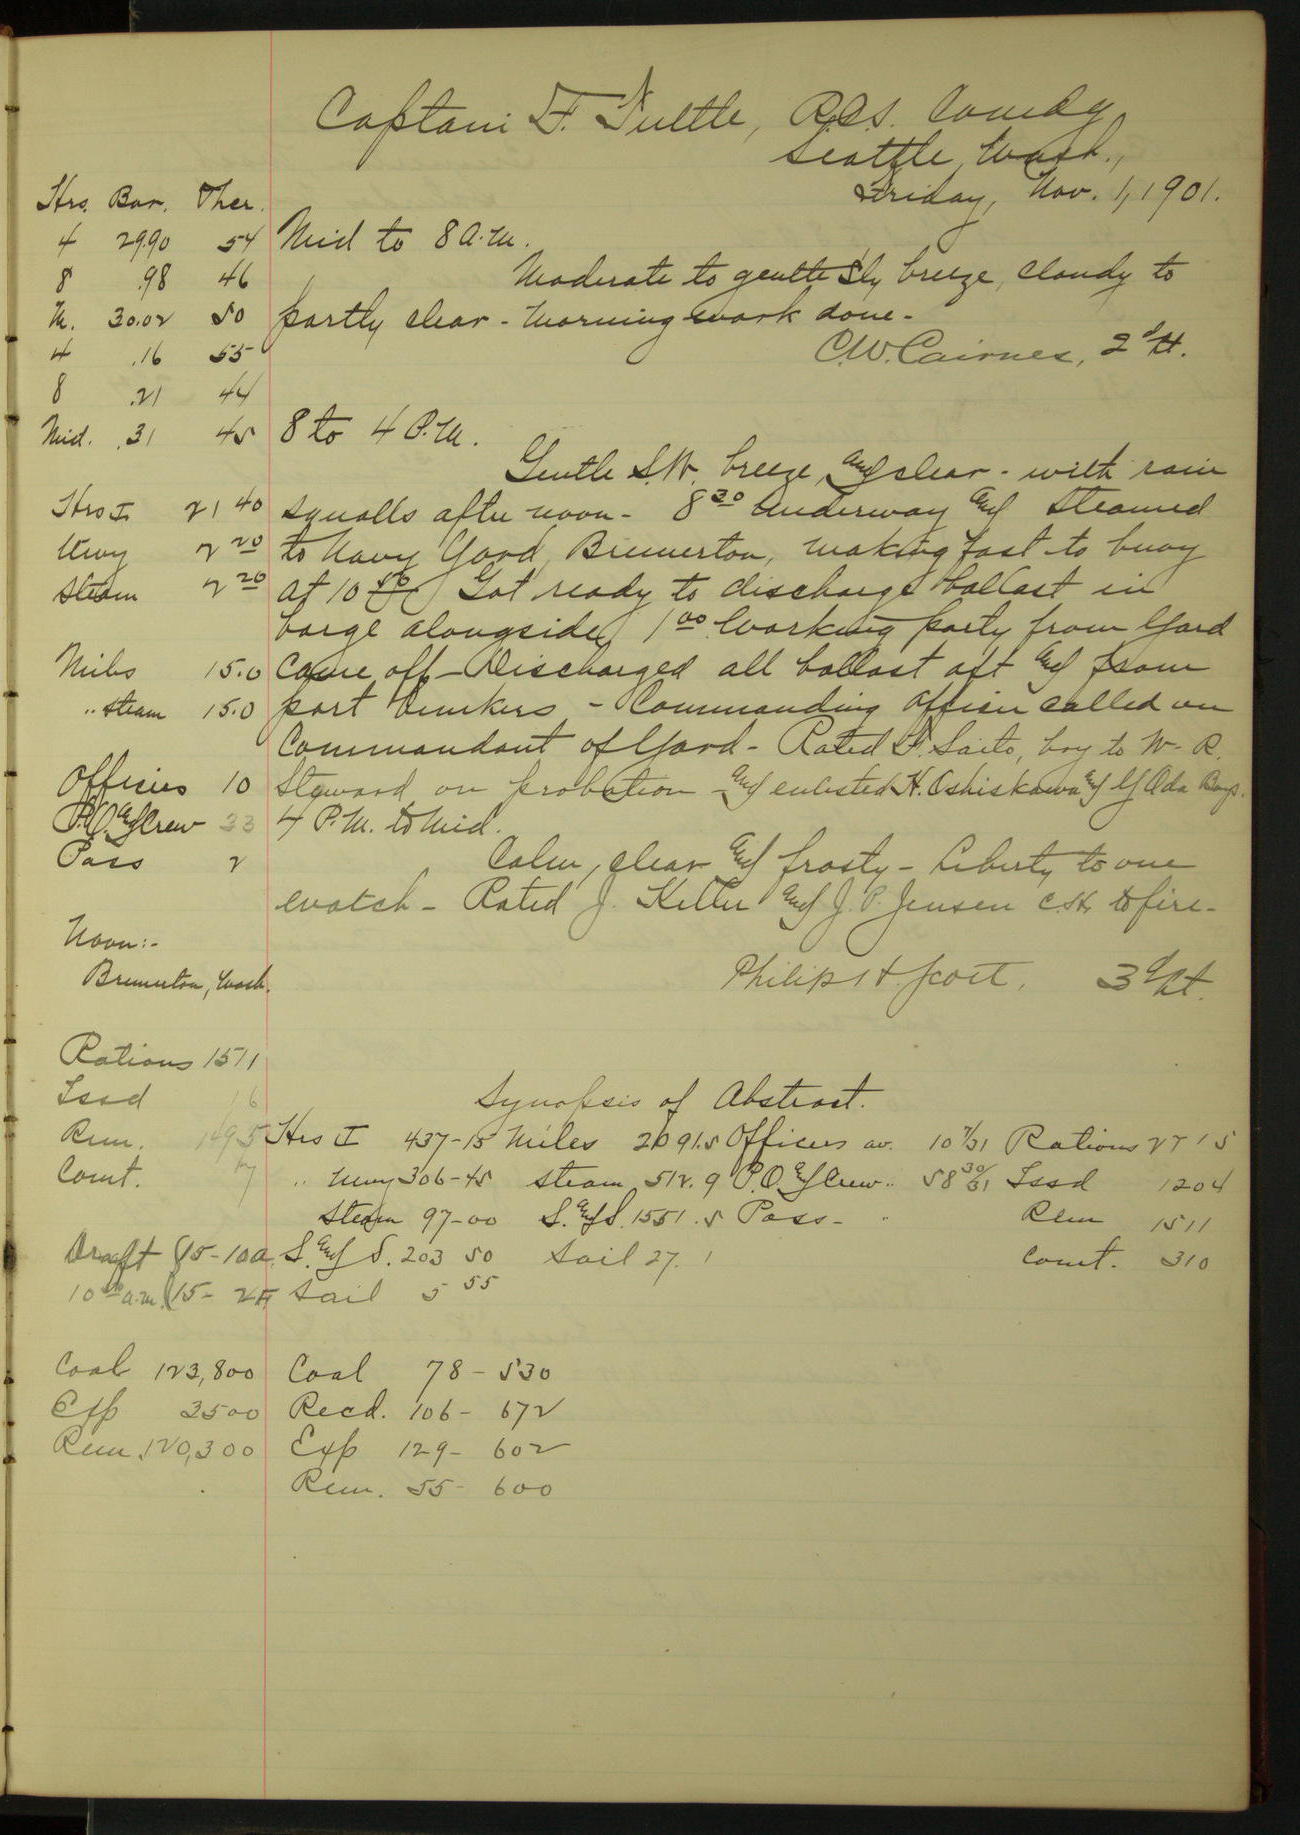 Captain F. Tuttle, R.C.S. Comdg
Seattle, Wash.,
Friday, Nov. 1, 1901.
Hrs. Bar. Ther.
4 29.90 54
8 .98 46
M. 30.02 50
4 .16 55
8 .21 44
Mid. .31 45
Mid to 8 A.M.
Moderate to gentle S'ly breeze, cloudy to
partly clear - Morning work done -
C.W. Cairnes, 2d Lt.
8 to 4 P.M.
Gentle S.W. breeze, and clear - with rain
squalls after noon - 8 30 Underway and steamed
to Navy Yard, Bremerton, making fast to buoy
at 10 50 Got ready to discharge ballast in
barge alongside, 1 00 Working party from Yard
came off - Discharged all ballast aft and from
port bunkers - Commanding Officer called on
Commandant of Yard - Rated F. Saito, boy to W. R.
Steward on probation - and enlisted K. Oshiskawa and Y Oda Boys.
4 P.M. to Mid.
Calm, clear and frosty - Liberty to one
watch - Rated J. Keller and J. P. Jensen C.H. to fire -
Philip H. Scott, 3d Lt.
Hrs I 21 40
Uwy 2 20
Steam 2 20
Miles 15.0
" steam 15.0
Officers 10
P.O. and Crew 33
Pass 2
Noon:-
Bremerton, Wash.
Rations 1511
Issd 16
Rem. 1495
Comt. 7
Draft (15-10 A
10 a.m. (15- 2 F
Coal 123,800
Exp 3500
Rem. 120,300
Synopsis of Abstract.
Hrs I 437-15 Miles 2091.5 Officers av. 10 7/31 Rations 2715
" Uwy 306-45 steam 512.9 P.O. & Crew " 58 30/31 Issd 1204
Steam 97-00 S. and S. 1551.5 Pass - " Rem 1511
S. and S. 203 50 Sail 27.1 Comt. 310
Sail 5 55
Coal 78-530
Recd. 106-672
Exp 129-602
Rem. 55-600